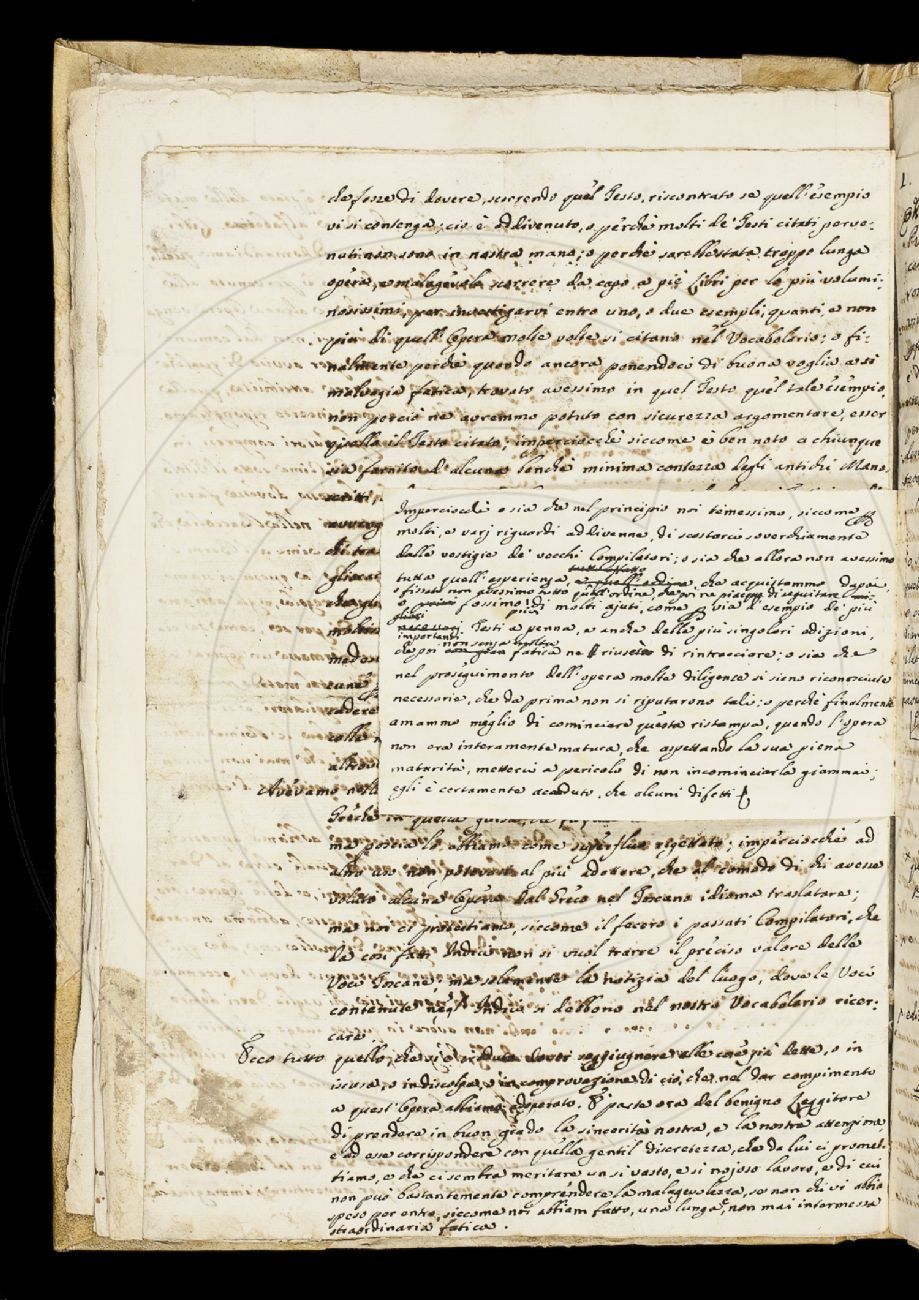 de fosse di dovere, scorrendo quel Testo, riscontrato se quell'esempio
vi si contenga; ciò è addivenuto, o perchè molti de' Testi citati perve-
nuti non sono in nostra mano; o perchè sarebbe stata troppo lunga
opera, e malagevole scorrere da capo a piè Libri per lo più volumi-
nosissimi, per investigarvi entro uno, o due esempli, quanti, e non
più di quell'Opera molte volte si citano nel Vocabolario; o fi-
nalmente perchè quando ancora ponendoci di buona voglia a sì
malvagia fatica, trovato avessimo in quel Testo quel tale esempio,
non perciò ne avremmo potuto con sicurezza argomentare, esser
quello il Testo citato; imperciocchè siccome è ben noto a chiunque
sia fornito d'alcuna benchè minima contezza degli antichi Mano-
scritti,
Imperciocchè o sia che nel principio noi temessimo, siccome
molti, e varj riguardi addivenne, di scostarci soverchiamente
dalle vestigie de' vecchi Compilatori; o sia che allora non avessimo
tutta quell'esperienza, e quell'ordine, che acquistammo dapoi,
o fissato non avessimo tutto quell'ordine, che poi ne piacque di seguitare
o fossimo di molti ajuti, come via d'esempio de' più
importanti Testi a penna, e anche delle più singolari edizioni,
che poi non senza molta fatica ne riuscì di rintracciare; o sia che
nel proseguimento dell'opera molte diligenze si sieno riconosciute
necessarie, che da prima non si riputarono tali; o perchè finalmente
amammo meglio di cominciare questa ristampa, quando l'opera
non era interamente matura, che aspettando la sua piena
maturità, metterci a pericolo di non incominciarla giammai;
egli è certamente accaduto, che alcuni difetti
Avevamo nella
Greche in questa guisa,
ma poscia lo abbiamo come superfluo rigettato; imperciocchè ad
altro uso non potevasi al più adattare, che al comodo di chi avesse
voluto alcuna Opera dal Greco nel Toscano idioma traslatare;
ma noi ci protestiamo, siccome il fecero i passati Compilatori, che
da così fatti Indici non si vuol trarre il preciso valore delle
Voci Toscane; ma solamente la notizia del luogo, dove le Voci
contenute negl'Indici si debbono nel nostro Vocabolario ricer-
care.
Ecco tutto quello, che si è creduto dover soggiugnere alle cose più dette, o in
iscusa, o in discolpa, o in comprovazione di ciò, che nel dar compimento
a quest'Opera abbiamo adoperato. È parte ora del benigno Leggitore
di prendere in buon grado la sincerità nostra, e la nostra attenzione
e ad esse corrispondere con quella gentil discretezza, che da lui ci promet-
tiamo, e che ci sembra meritare un sì vasto, e sì nojoso lavoro, e di cui
non può bastantemente comprendere la malagevolezza, se non chi vi abbia
speso per entro, siccome noi abbiam fatto, una lunga, non mai intermessa
straordinaria fatica.